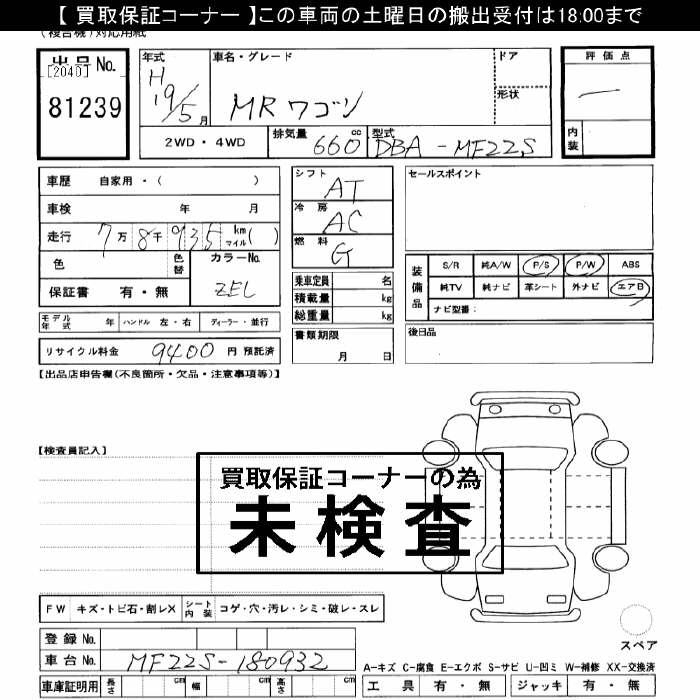 【 買取保証コーナー 】この車両の土曜日の搬出受付は18:00まで
(複合機)対応用紙
出品No.
[2040]
81239
年式
H
19/5月
車名・グレード
MRワゴン
ドア
形状
評価点
―
内装
2WD・4WD
排気量
660cc
型式
DBA-MF22S
車歴 自家用・( )
車検 年 月
走行 7万8千935 km マイル( )
色 色替
カラーNo.
ZEL
保証書 有・無
シフト
AT
冷房
AC
燃料
G
乗車定員 名
積載量 kg
総重量 kg
書類期限
月 日
セールスポイント
装備品
S/R 純A/W P/S P/W ABS
純TV 純ナビ 革シート 外ナビ エアB
ナビ型番:
後日品
モデル年式 年 ハンドル 左・右 ディーラー・並行
リサイクル料金 9400 円 預託済
【出品店申告欄(不良箇所・欠品・注意事項等)】
【検査員記入】
買取保証コーナーの為
未検査
FW キズ・トビ石・割レX シート内装 コゲ・穴・汚レ・シミ・破レ・スレ
スペア
登録No.
車台No. MF22S-180932
A-キズ C-腐食 E-エクボ S-サビ U-凹ミ W-補修 XX-交換済
車庫証明用 長さ cm 幅 cm 高さ cm
工具 有・無 ジャッキ 有・無